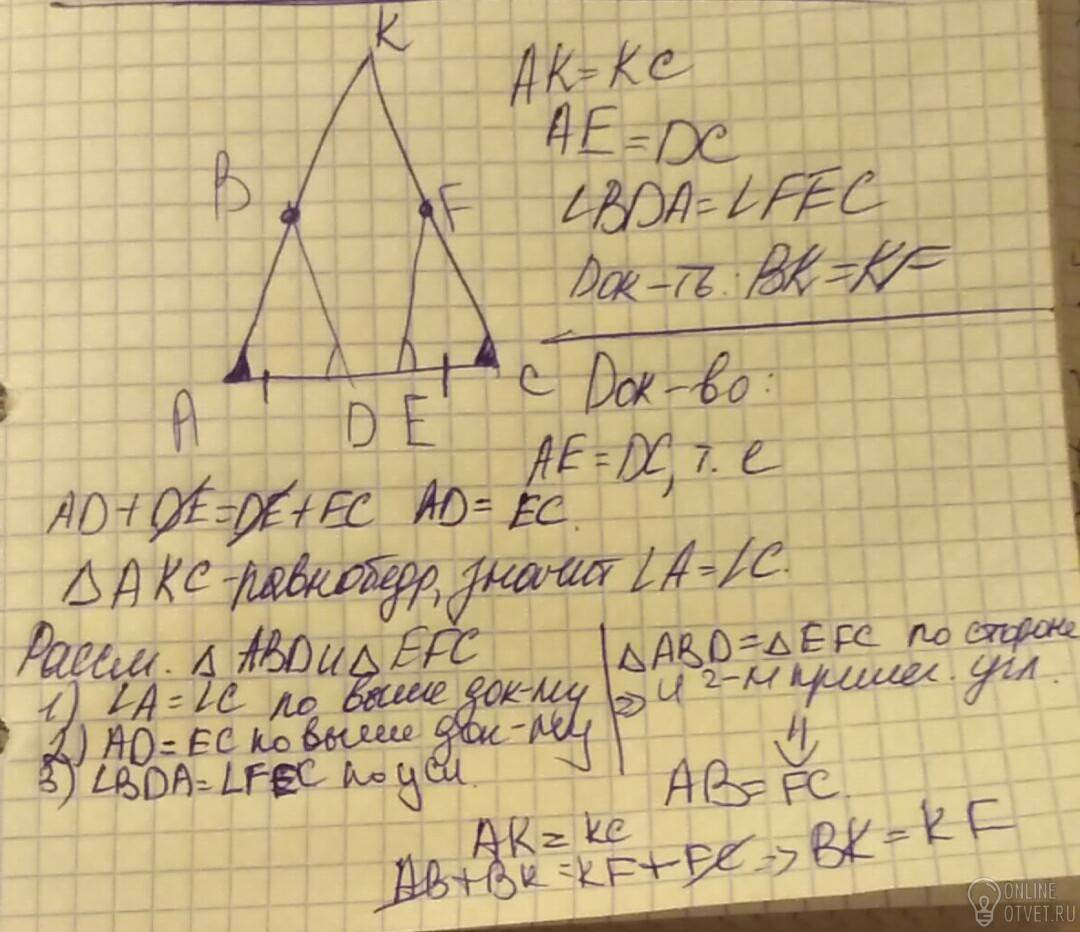 K
AK=KC
AE=DC
B
F
∠BDA=∠FEC
Док-ть: BK=KF
A
D
E
C
Док-во:
AE=DC, т. е
AD+DE=DE+EC AD=EC.
△AKC-равнобедр, значит ∠A=∠C.
Рассм. △ABD и △EFC
1) ∠A=∠C по выше док-му
2) AD=EC по выше док-му
3) ∠BDA=∠FEC по усл.
△ABD=△EFC по стороне
=> и 2-м прилеж. угл.
⇓
AB=FC.
AK=KC
AB+BK=KF+FC=>BK=KF
ONLINE
OTVET.RU